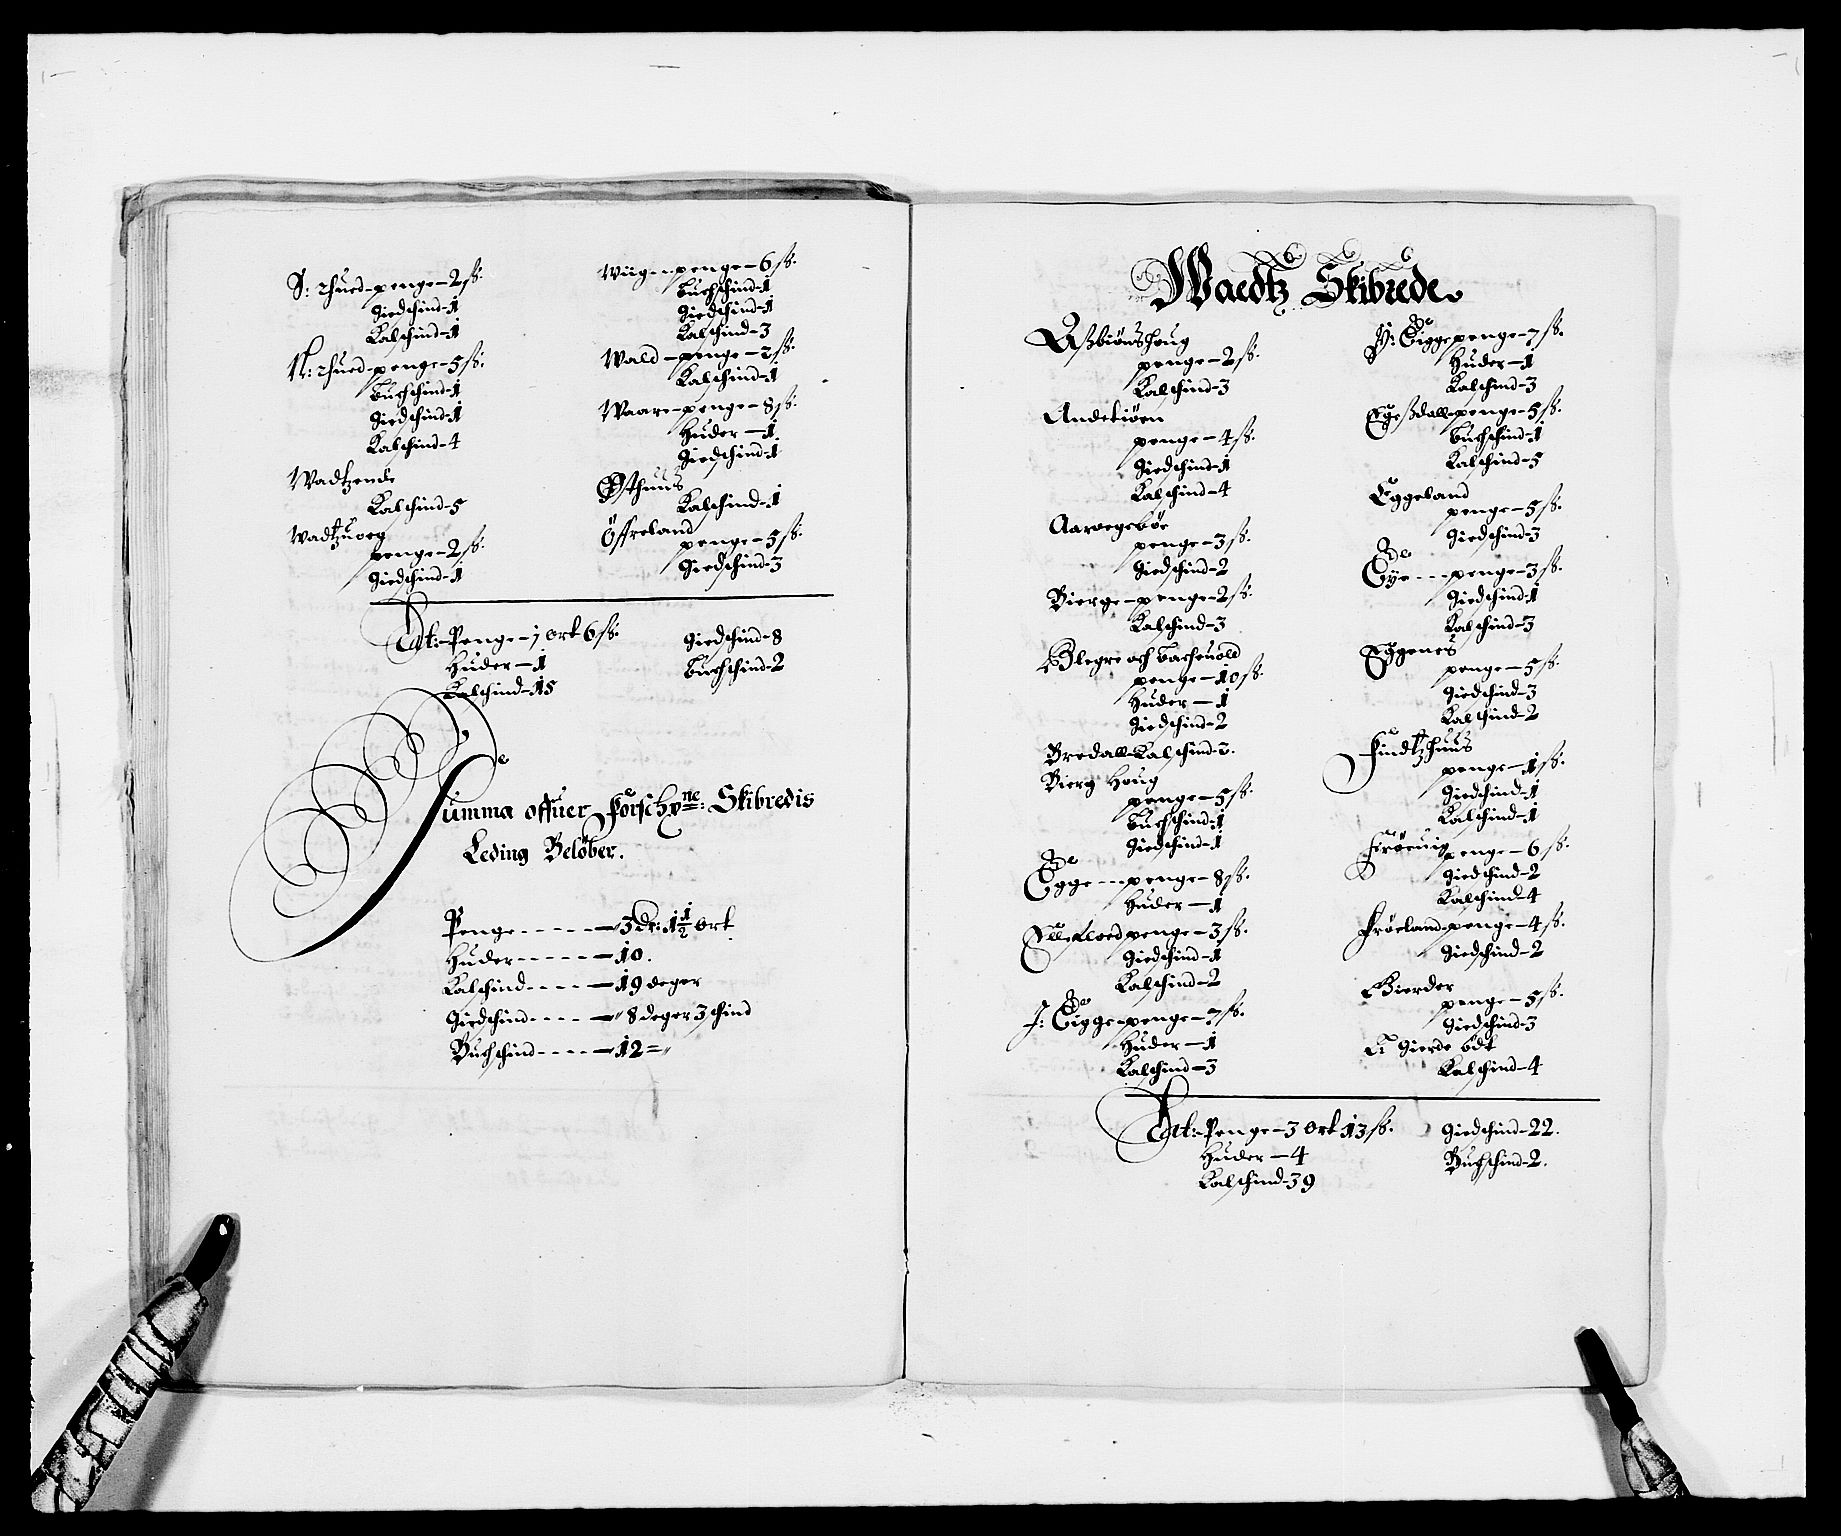 S: Thued penge - 2 sk.
Giedschind - 1
Kalschind - 1
N: Thued penge - 5 sk.
Buchschind - 1
Giedschind - 1
Kalschind - 4
Wadtzende
Kalschind - 5
Wadtzuoeg
penge - 2 sk.
Giedschind - 1
Wiig - penge - 6 sk.
Buchschind - 1
Giedschind - 1
Kalschind - 3
Wald - penge - 2 sk.
Kalschind - 1
Waare - penge - 8 sk.
Huder - 1
Giedschind - 1
Østhuus
Kalschind - 1
Öffreland
penge - 5 sk.
Giedschind - 3
Lat: Penge - 1 ort 6 sk.
Huder - 1
Kalschind - 15
Giedschind - 8
Buchschind - 2
Summa offuer Forschne: Skibredis
Leding Beløber.
Penge - 3 dr: 1 1/2 ort
Huder - 10.
Kalschind - 19 deger
Giedschind - 8 deger 3 schind
Buchschind - 12 = "
Waedtz Skibrede.
Aszbiönshoug
penge - 2 sk.
Kalschind - 3
Andetiöen
penge - 4 sk.
Giedschind - 1
Kalschind - 4
Aaroegeböe
penge - 3 sk.
Giedschind - 2
Bierge - penge - 2 sk.
Kalschind - 3
Blegre och Bacheuold
penge - 10 sk.
Huder - 1
Giedschind - 2
Bredall - Kalschind - 2.
Bierg Houg
penge - 5 sk.
Buchschind - 1
Giedschind - 1
Egge - penge - 8 sk.
Huder - 1
Ellefloed penge - 3 sk.
Giedschind - 1
Kalschind - 2
I: Eigge - penge - 7 sk.
Huder - 1
Kalschind - 3
Y: Eigge penge - 7 sk.
Huder - 1
Kalschind - 3
Egeszdall - penge - 5 sk.
Buchschind - 1
Kalschind - 5
Eggeland
penge - 5 sk.
Giedschind - 3
Eye - penge - 3 sk.
Giedschind - 1
Kalschind - 3
Eggenes
penge - 5 sk.
Giedschind - 3
Kalschind - 2
Findtzhuus
penge - 1 sk.
Giedschind - 1
Kalschind - 1
Fröeuig
penge - 6 sk.
Giedschind - 2
Kalschind - 4
Fröeland - penge - 4 sk.
Giedschind - 2
Gierder
penge - 5 sk.
Giedschind - 3
Et Gierde ödt
Kalschind - 4
Lat: Penge - 3 ort 13 sk.
Huder - 4
Kalschind - 39
Giedschind - 22.
Buchschind - 2.